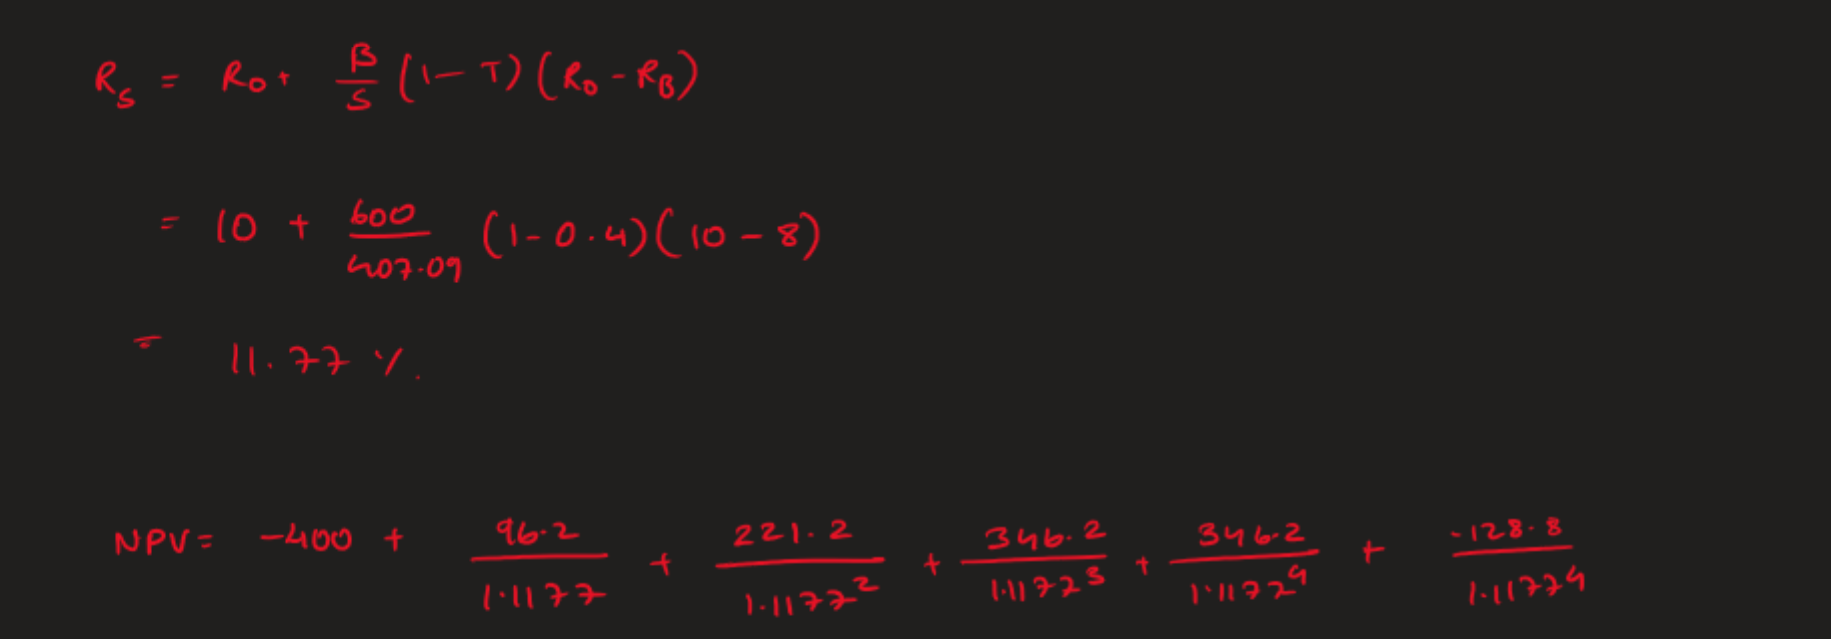 R_S = R_0 + B/S (1 - T) (R_0 - R_B)
= 10 + 600/407.09 (1 - 0.4) (10 - 8)
= 11.77 %.
NPV = -400 + 96.2/1.1177 + 221.2/1.1177^2 + 346.2/1.1177^3 + 346.2/1.1177^4 + -128.8/1.1177^4